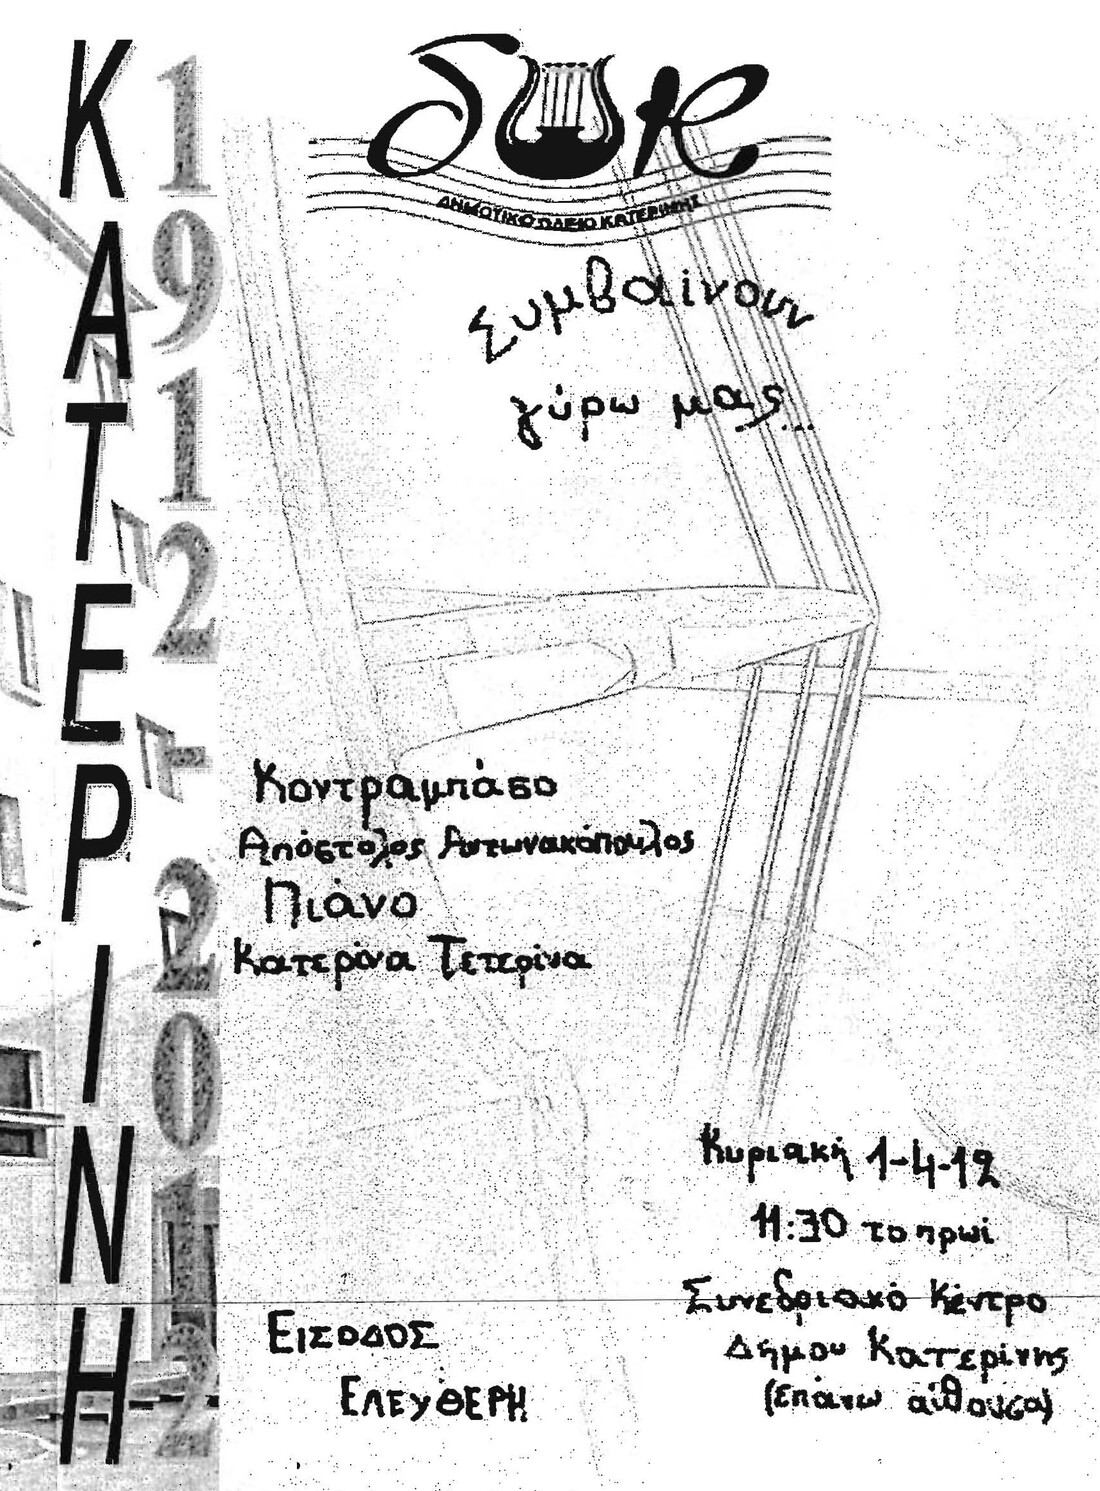 ΚΑΤΕΡΙΝΗ
1912 - 2012
δωκ
ΔΗΜΟΤΙΚΟ ΩΔΕΙΟ ΚΑΤΕΡΙΝΗΣ
Συμβαίνουν
γύρω μας...
Κοντραμπάσο
Απόστολος Αντωνακόπουλος
Πιάνο
Κατερίνα Τετερίνα
Κυριακή 1-4-12
11:30 το πρωί
Συνεδριακό Κέντρο
Δήμου Κατερίνης
(Επάνω αίθουσα)
ΕΙΣΟΔΟΣ
ΕΛΕΥΘΕΡΗ